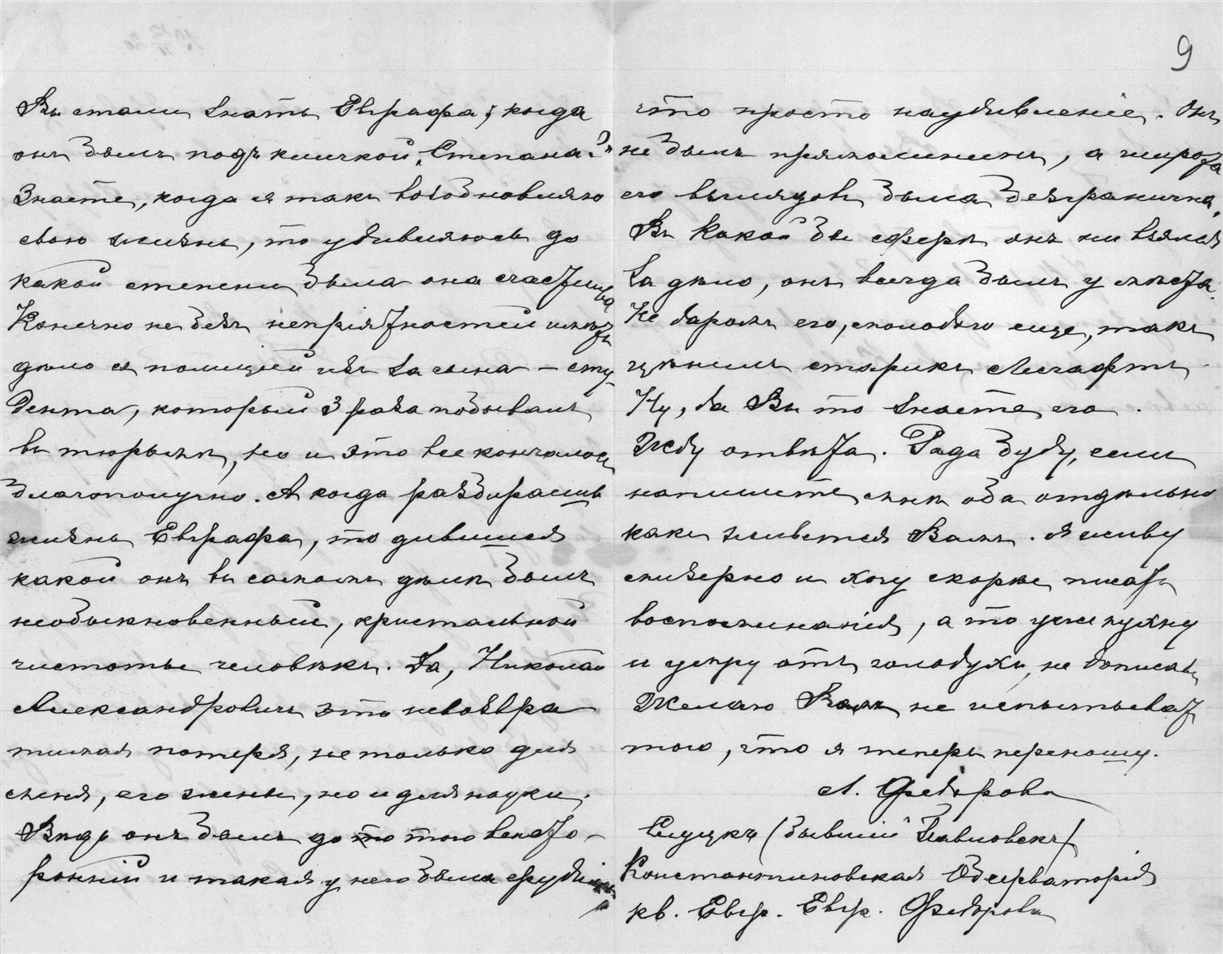 9
Вы стали знать Евграфа, когда
онъ былъ подъ кличкой „Степана“.
Знаете, когда я такъ возобновляю
свою жизнь, то удивляюсь до
какой степени была она счастлива.
Конечно не безъ непріятностей
дѣло съ полицией изъ за сына – сту-
дента, который 3 раза побывалъ
въ тюрьмѣ, но и это все кончалось
благополучно. А когда разбираешь
жизнь Евграфа, то дивишься
какой онъ въ самомъ дѣлѣ былъ
необыкновенный, кристальной
чистоты человѣкъ. Да, Николай
Александровичъ это невозвра-
тимая потеря, не только для
меня, его жены, но и для науки.
Вѣдь онъ былъ до того всесто-
ронній и такая у него была эрудиція,
что просто наудивленіе. Онъ
не былъ прямолинеенъ, а широта
его взглядовъ была безгранична.
Въ какой бы сферѣ онъ ни взялся
за дѣло, онъ всегда былъ у мѣста.
Не даромъ его, молодого еще, такъ
цѣнилъ старикъ Лесгафтъ.
Ну, да Вы то знаете его.
Жду отвѣта. Рада буду, если
напишите мнѣ оба отдѣльно
какъ живется Вамъ. Я живу
скверно и хочу скорѣе писать
воспоминанія, а то уже пухну
и умру отъ голодухи, не дописавъ
Желаю Вамъ не испытывать
того, что я теперь переношу.
Л. Федорова
Слуцкъ (бывшій Павловскъ)
Константиновская Обсерваторія
кв. Евгр. Евгр. Федорова